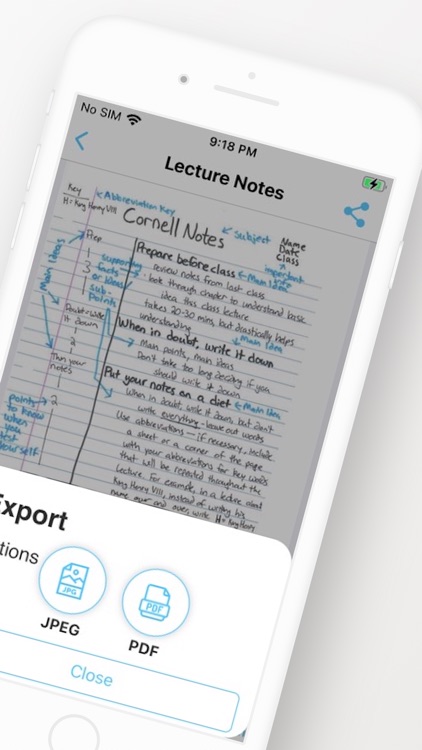 No SIM
9:18 PM
Lecture Notes
Key
H = King Henry VIII
Abbreviation Key
Cornell Notes
Subject
Name
Date
Class
important
Prepare before class
Main Idea
review notes from last class
look through chapter to understand basic
idea this class lecture
takes 20-30 mins, but drastically helps
understanding
Main Idea
When in doubt, write it down
Main points, main ideas
Don't take too long deciding if you
should write it down
Put your notes on a diet
Main Idea
When in doubt write it down, but don't
write everything - leave out words
Use abbreviations - if necessary, include
a sheet or a corner of the page
with your abbreviations for key words
that will be repeated throughout the
lecture. For example, in a lecture about
King Henry VIII, instead of writing his
name over and over, write H = King Henry
Main Ideas
Prep
1
3
1
supporting
facts
or ideas
sub-
points
Doubt = Write
it down
1
2
Thin your
notes
1
2
points
to know
when
you
test
your self
Export
tions
JPEG
PDF
JPG
PDF
Close